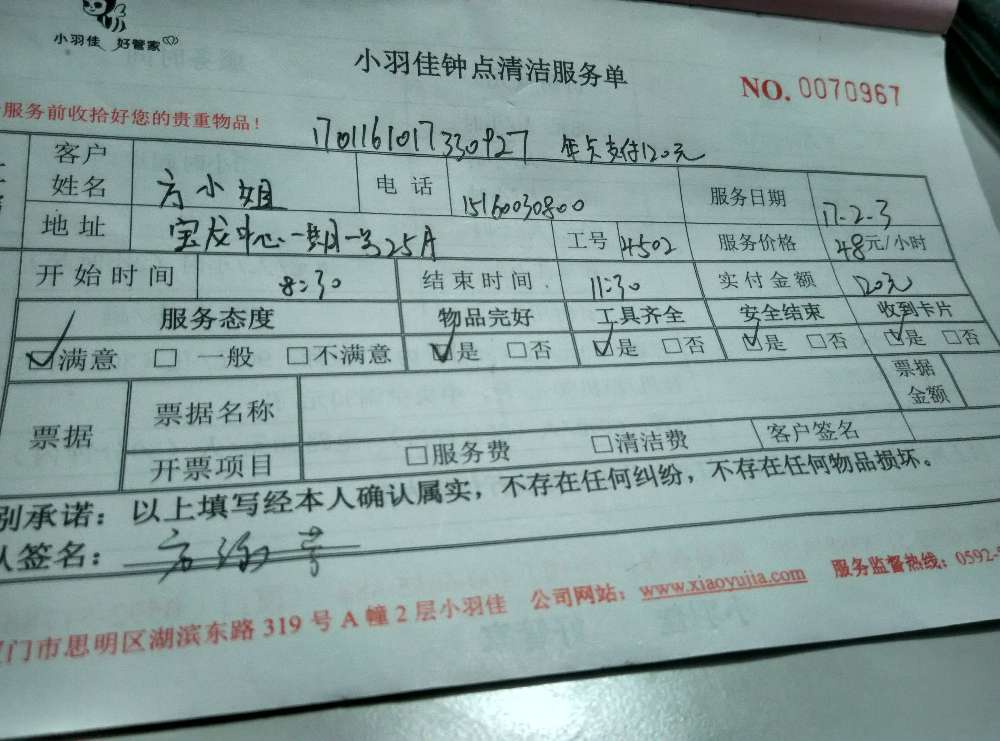 小羽佳 好管家
小羽佳钟点清洁服务单
NO. 0070967
服务前收拾好您的贵重物品!
1701161017330927 年卡支付120元
客户姓名 方小姐 电话 15160030800 服务日期 17.2.3
地址 宝龙中心一期一号25A 工号 4502 服务价格 48元/小时
开始时间 8:30 结束时间 11:30 实付金额 120元
服务态度 物品完好 工具齐全 安全结束 收到卡片
☑满意 □一般 □不满意 ☑是 □否 ☑是 □否 ☑是 □否 ☑是 □否
票据 票据名称 票据金额
开票项目 □服务费 □清洁费 客户签名
别承诺:以上填写经本人确认属实,不存在任何纠纷,不存在任何物品损坏。
人签名:
门市思明区湖滨东路319号A幢2层小羽佳 公司网站:www.xiaoyujia.com 服务监督热线:0592-5